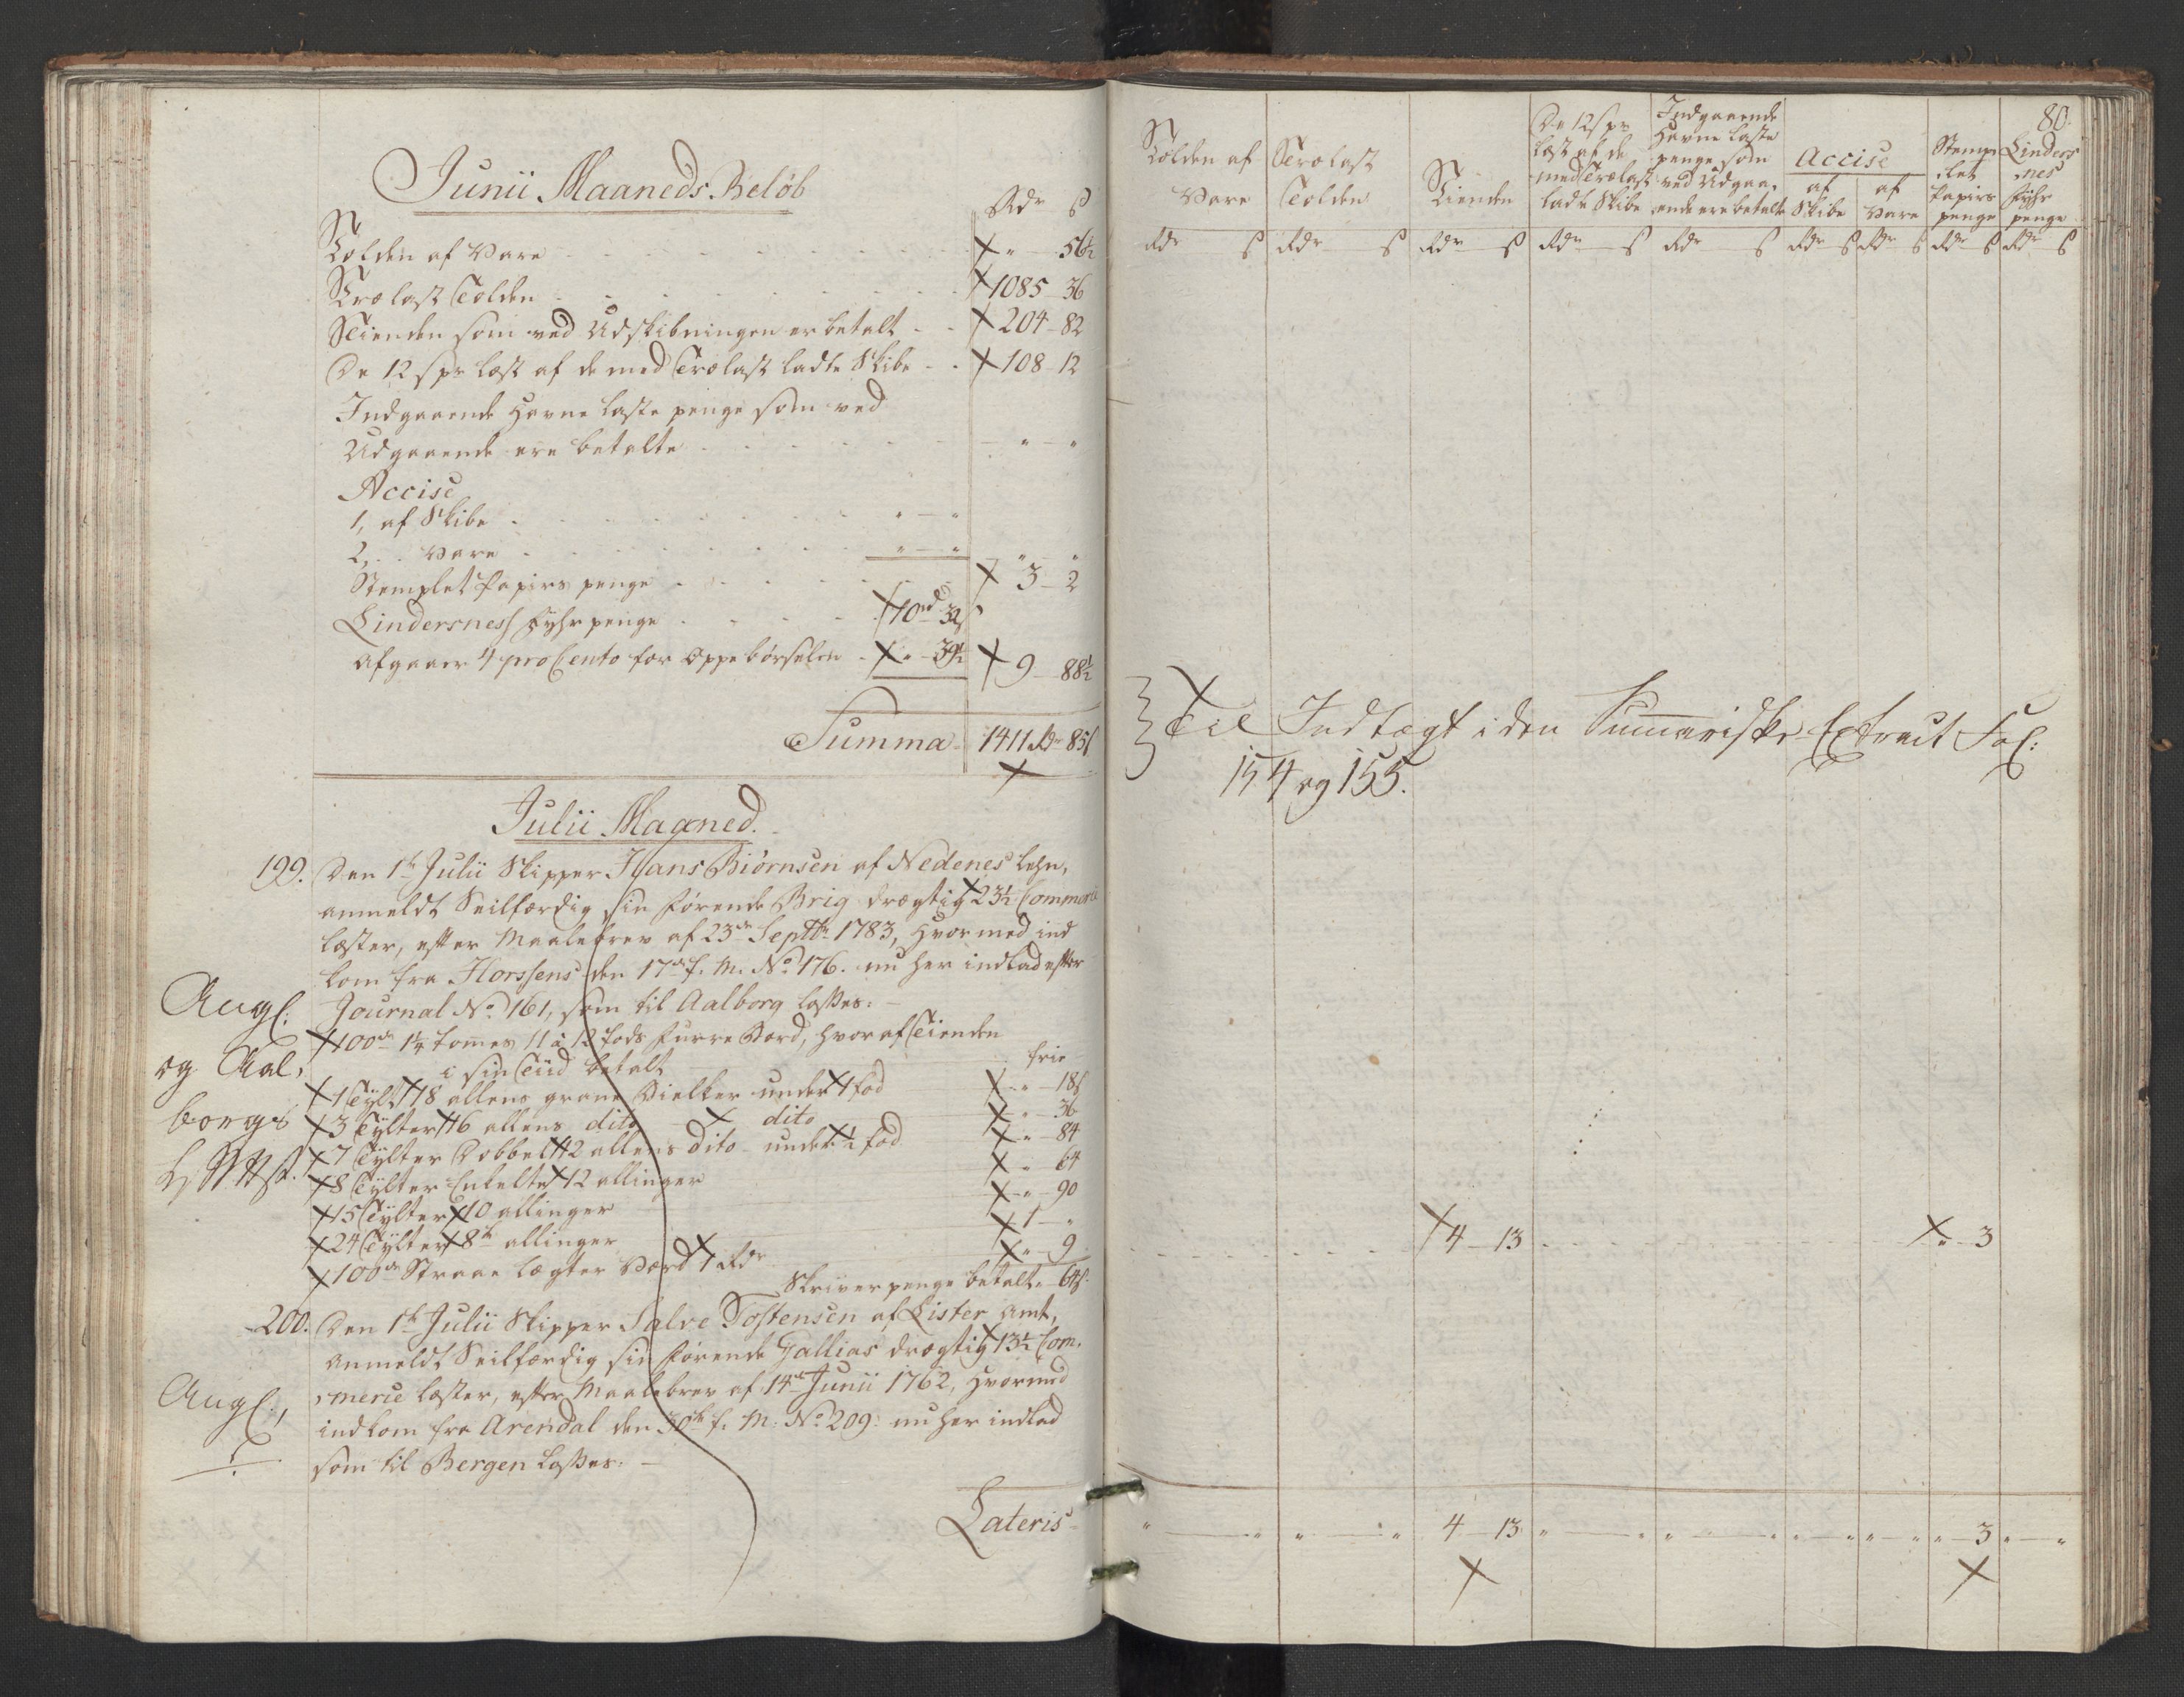 Junii Maaneds Beløb
Rdr ß
Tolden af Vare " 56½
Trælast Tolden 1085 - 36
Tienden som ved Udskibningen er betalt 204 - 82
De 12 s pr læst af de med Trælast ladte Skibe 108 - 12
Indgaaende Havne Laste penge som ved
Udgaaende ere betalte " - "
Accise
1, af Skibe " - "
2, .. Vare " - " " "
Stemplet Papiirs penge 3 - 2
Lindersness Fyhr penge 10 rd 32 s
Afgaaer 4 pro Cento for Oppebørselen " - 39½ 9 - 88½
Summa 1411 Rdr 85 s
Julii Maaned.
199. Den 1te Julii Skipper Hans Biørnsen af Nedenes Lehn,
anmeldt Seilfærdig sin førende Brig drægtig 23½ Commerce
læster, efter Maalebrev af 23de Septbr 1783, hvormed ind
kom fra Horssens den 17de f. M. No 176. nu her indlad efter
Journal No 161, som til Aalborg losses:
Angl:
og Aal,
borgs
100de 1¼ tommes 11 à 12 fods furre Bord, hvoraf Tienden
i sin Tiid betalt frie
1 Tylt 18 allens grane Bielker under 1 fod " - 18 s
3 Tylter 16 allens dito dito " - 36
7 Tylter Dobbelt 12 allens dito under ½ fod " - 84
8 Tylter Enkelte 12 allinger " - 64
15 Tylter 10 allinger " - 90
24 Tylter 8te allinger 1 - "
100de Straae Lægter Værd 1 Rdr " - 9
Skriverpenge betalt. 64 s.
200. Den 1te Julii Skipper Salve Tostensen af Lister Amt,
Anmeldt Seilfærdig sin førende Gallias drægtig 13½ Com,
merce læster, efter Maalebrev af 14de Junii 1762, hvormed
Angl:,
indkom fra Arendal den 30te f. M. No 209. nu her indlad
som til Bergen losses.
Lateris
80.
Tolden af Vare
Trælast Tolden
Tienden
De 12 s pr læst af de med Trælast ladte Skibe
Indgaaende Havne Laste penge som ved Udgaaende ere betalte
Accise
af Skibe
af Vare
Stemplet Papiirs penge
Lindersnes Fyhr penge
Rdr ß Rdr ß Rdr ß Rdr ß Rdr ß Rdr ß Rdr ß Rdr ß Rdr ß
Til Indtægt i den Summariske Extract Fol:
154 og 155.
4 - 13 " - 3
" " " " 4 - 13 " " " " " " " " " - 3 " - "